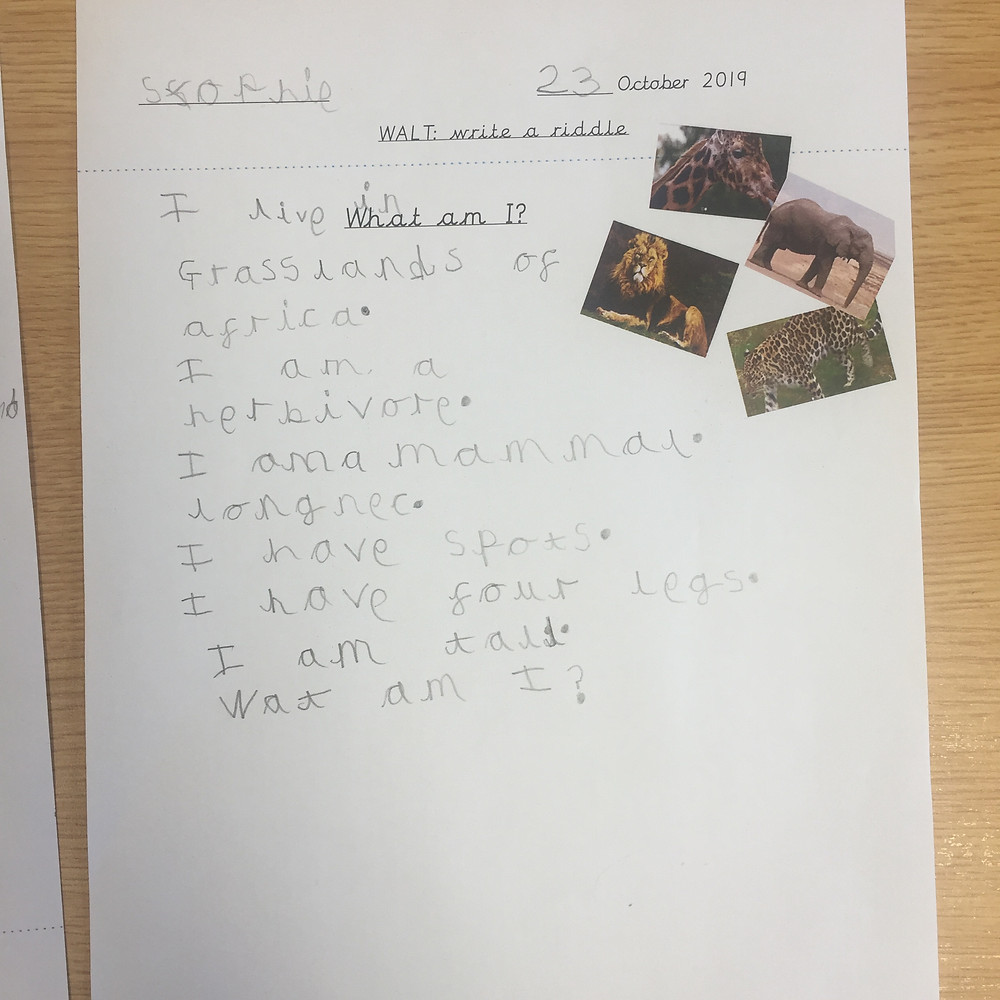 Sophie 23 October 2019
WALT: write a riddle
What am I?
I live in
Grasslands of
africa.
I am a
herbivore.
I am a mammal.
long nec.
I have spots.
I have four legs.
I am tall.
Wat am I?